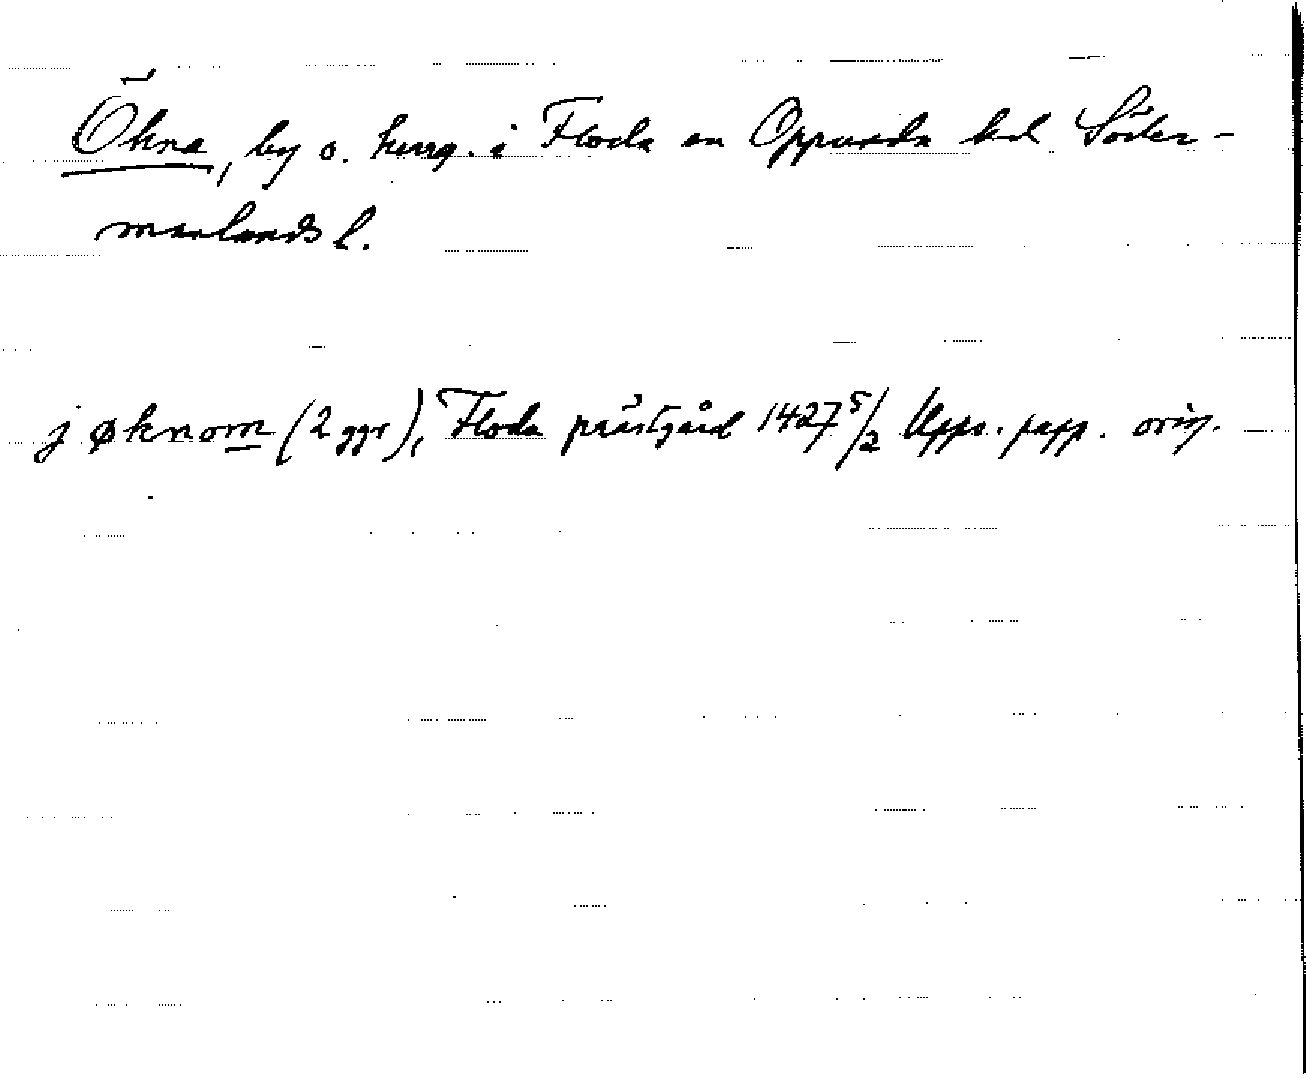 Ökna, by o. herrg. i Floda sn Oppunda hd Söder-
manlands l.
j øknom (2 ggr), Floda prästgård 1427 5/2 Upps. papp. orig.